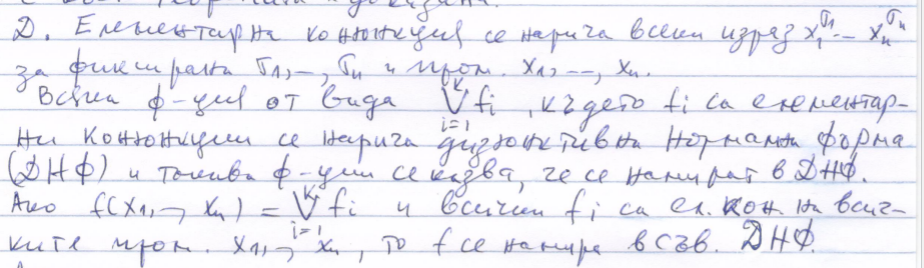 Д. Елементарна конюнкция се нарича всеки израз x₁^σ₁ ... xₙ^σₙ
за фиксирана σ₁, –, σₙ и пром. x₁, --, xₙ.
Всяка ф-ция от вида ⋁ᵢ₌₁ᵏ fi, където fi са елементар-
ни конюнкции се нарича дизюнктивна нормална форма
(ДНФ) и такива ф-ции се казва, че се намират в ДНФ.
Ако f(x₁, –, xₙ) = ⋁ᵢ₌₁ᵏ fi и всички fi са ел. кон. на всич-
ките пром. x₁, –, xₙ, то f се намира в съв. ДНФ.